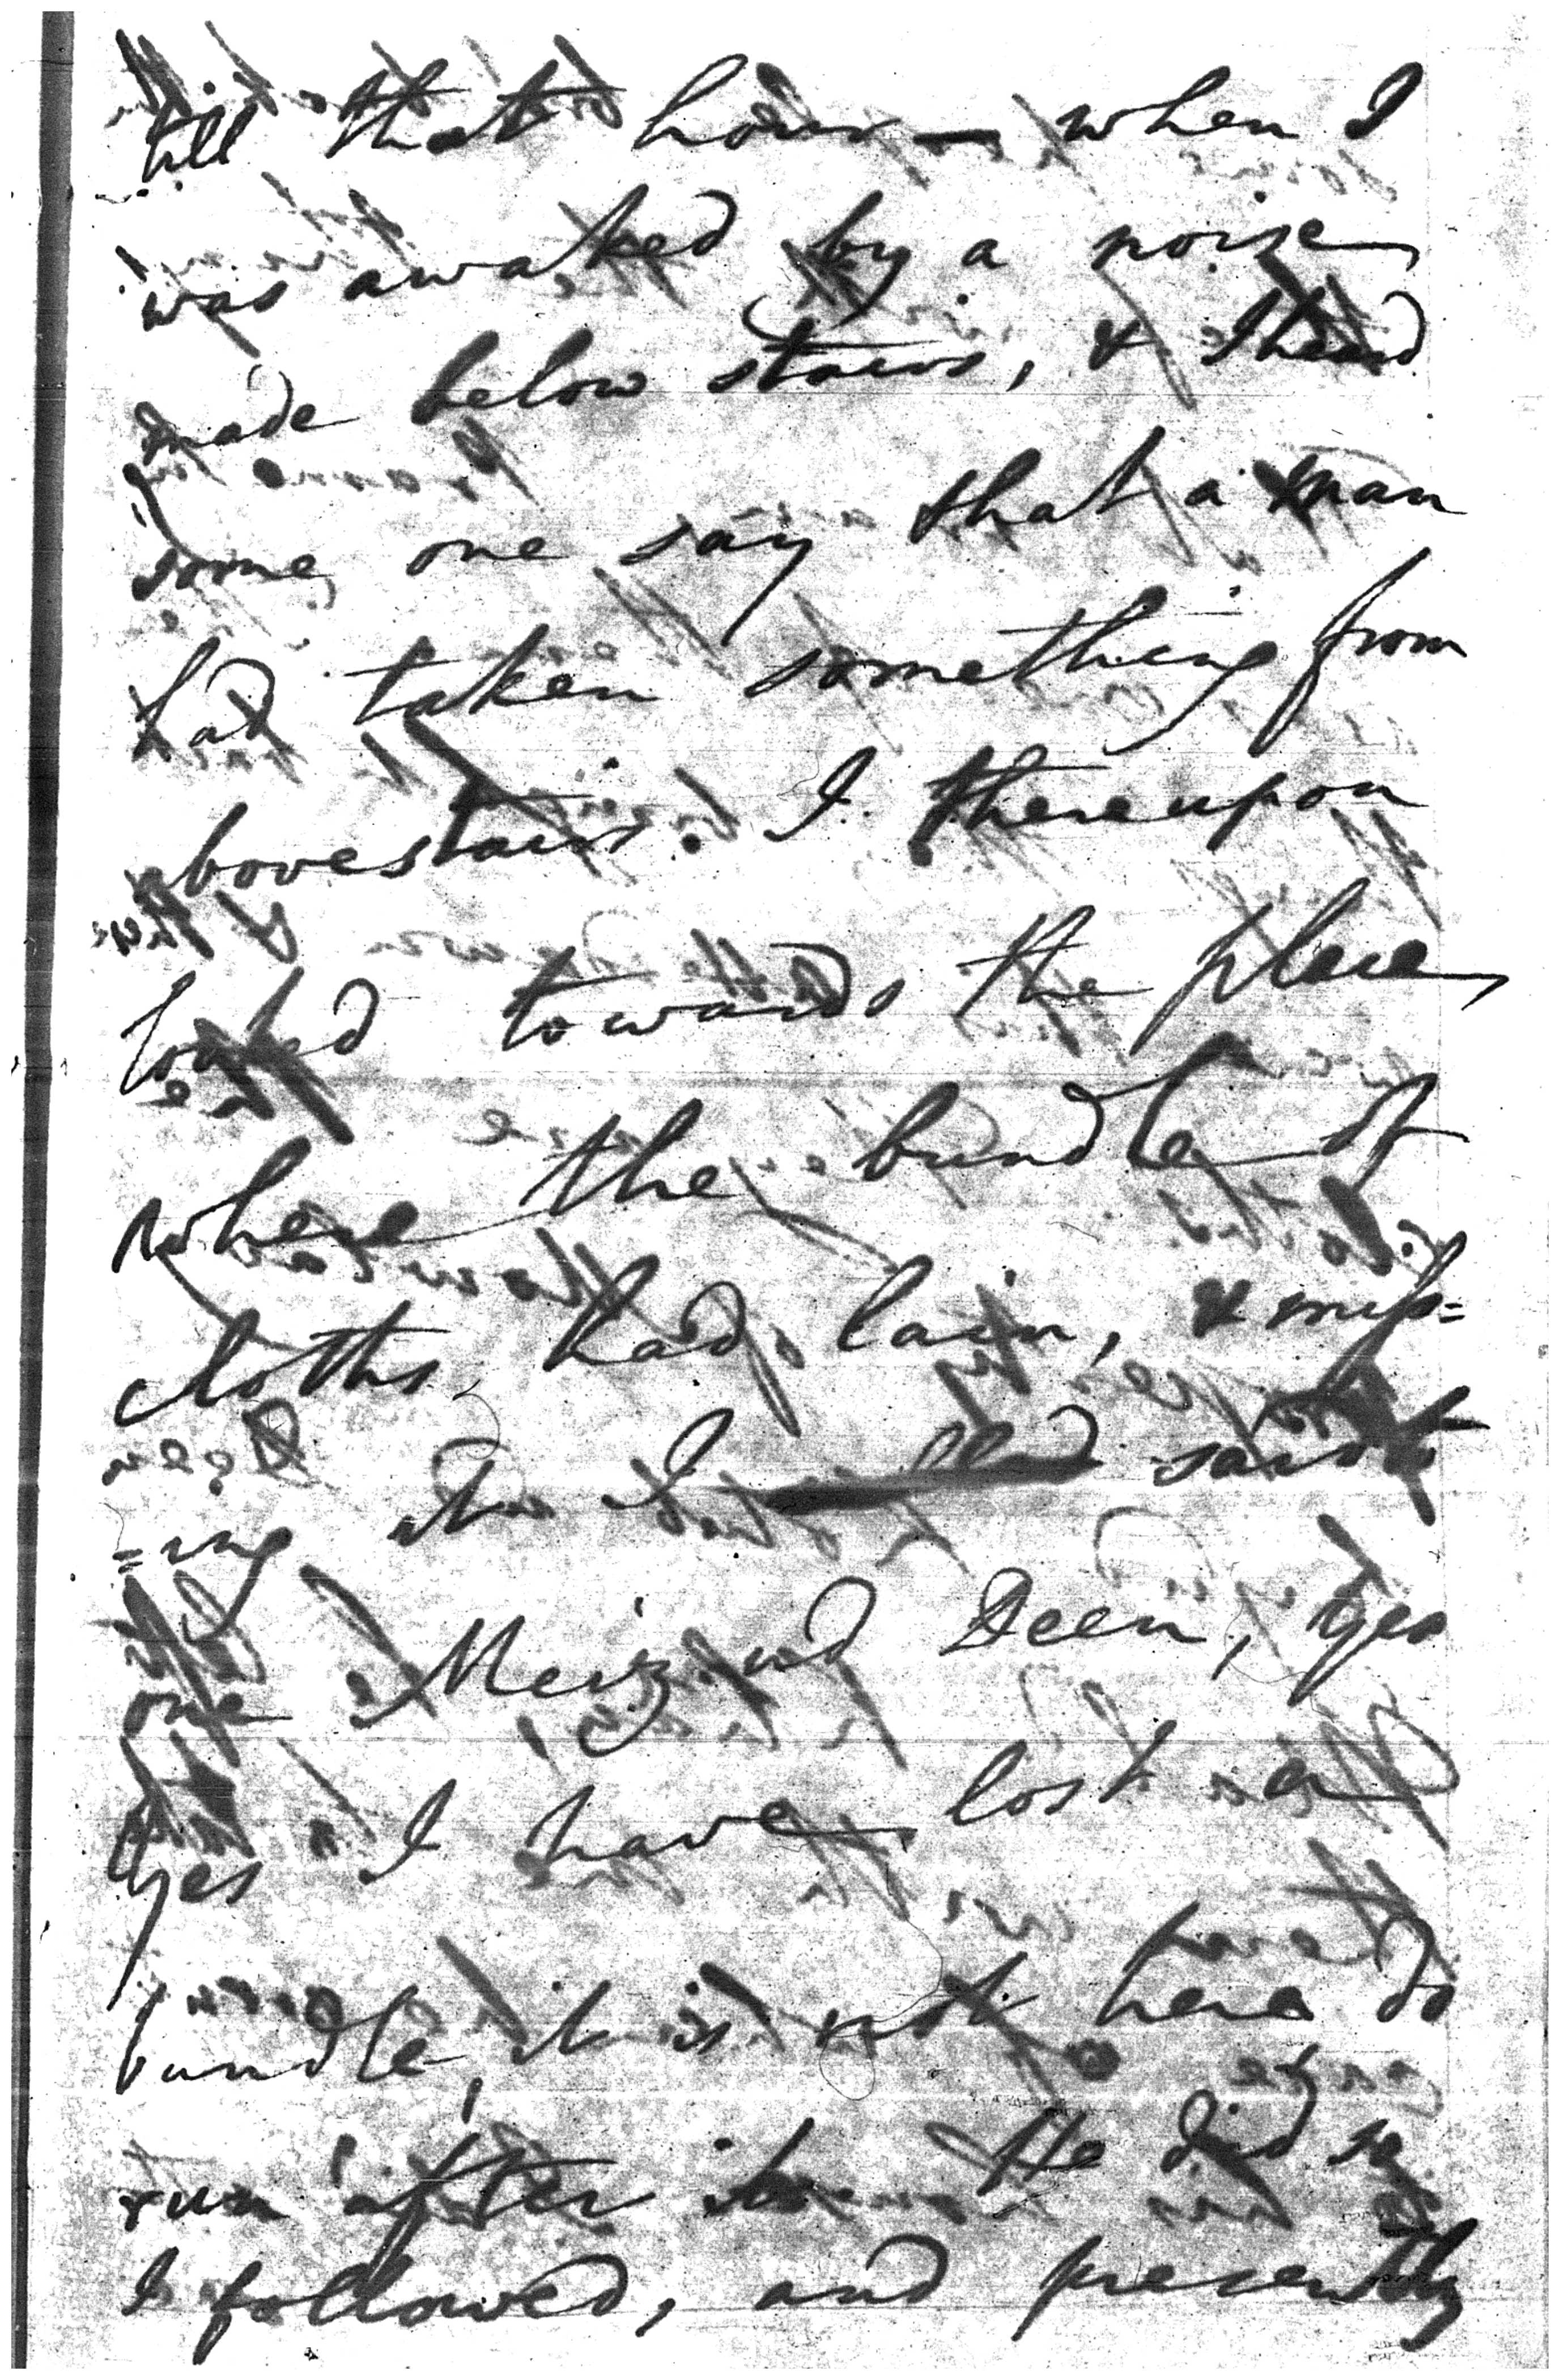 till that hour — when I
was awaked by a noise
made below stairs, & I heard
some one say that a man
had taken something from
abovestairs. I thereupon
looked towards the place
where the bundle of
cloths had lain, & miss=
=ing it I said to
one Meiz ud Deen, yes
yes I have lost a
bundle, it is not here do
run after it. He did so
I followed, and presently